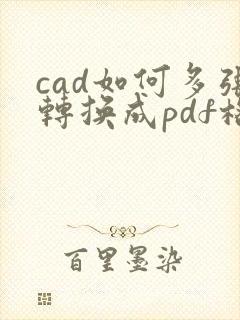 cad如何多張
轉換成pdf格
百里墨染